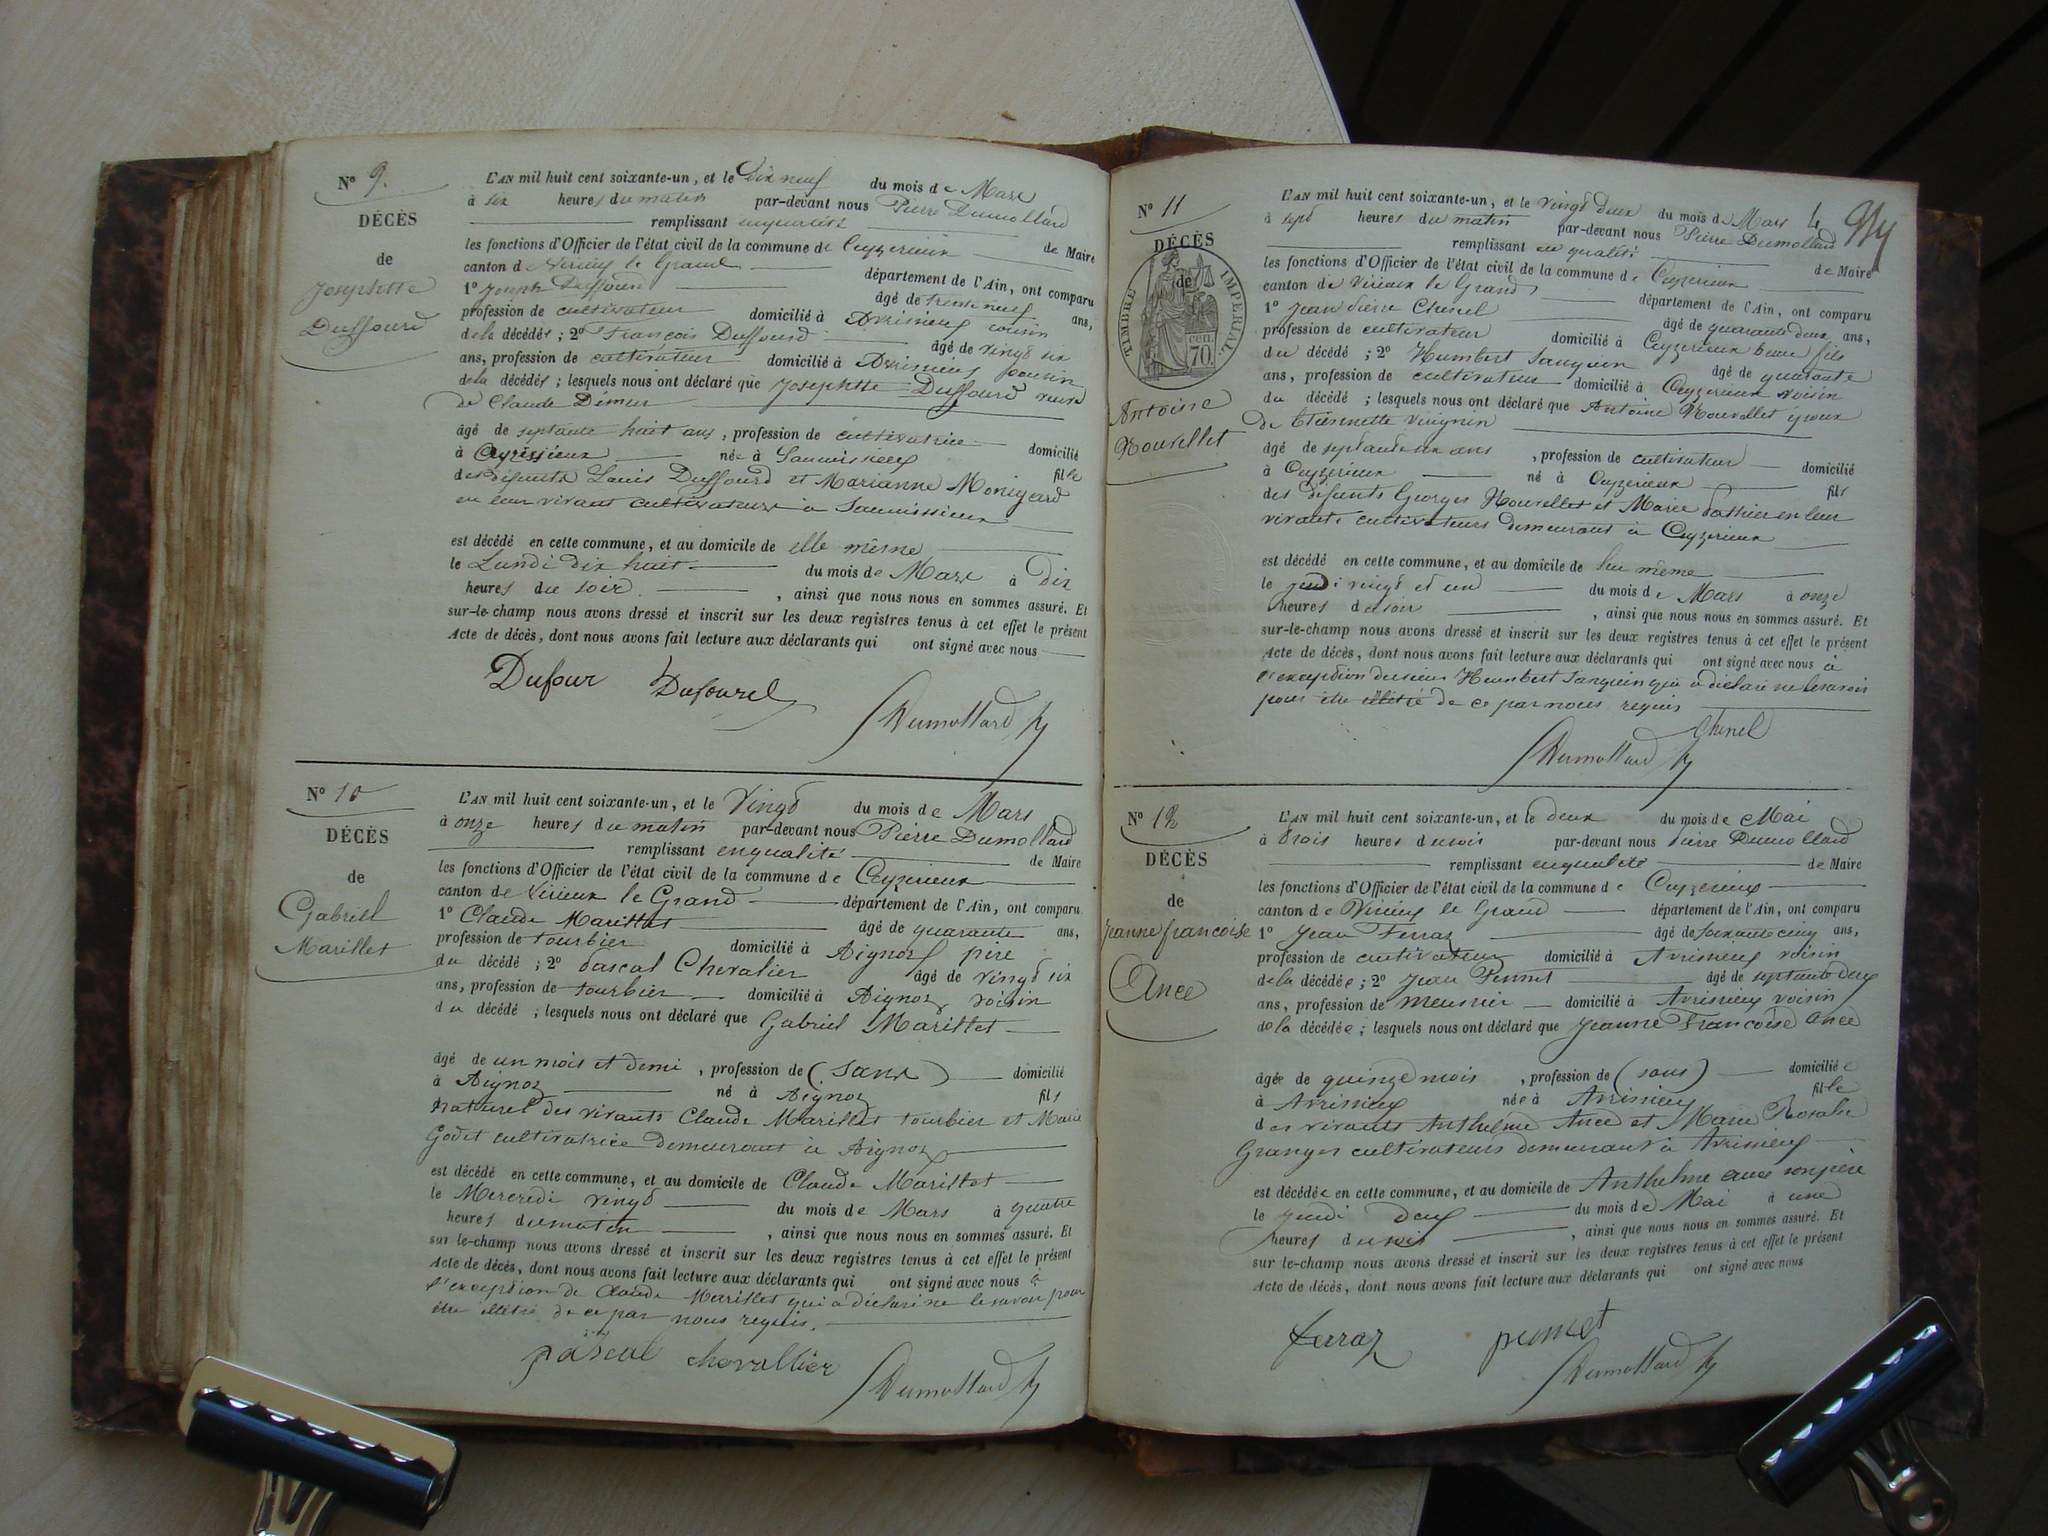 Nº 9.
DÉCÈS
de
Josephtte
Duffourd
L'AN mil huit cent soixante-un, et le dix neuf du mois de Mars
à six heures du matin par-devant nous Pierre Dumollard
remplissant en qualité de Maire
les fonctions d'Officier de l'état civil de la commune de Ceyzerieux
canton de Virieux le Grand département de l'Ain, ont comparu
1º Joseph Duffourd âgé de trente neuf ans,
profession de cultivateur domicilié à Avrissieux cousin
de la décédée ; 2º François Duffourd âgé de vingt six
ans, profession de cultivateur domicilié à Avrissieux cousin
de la décédée ; lesquels nous ont déclaré que Josephtte Duffourd veuve
de Claude Démeur
âgé de septante huit ans, profession de cultivatrice domicilié
à Avrissieux née à fille
des défunts Louis Duffourd et Marianne Monigard
en leur vivant cultivateurs à
est décédé en cette commune, et au domicile de elle même
le Lundi dix huit du mois de Mars à dix
heures du soir, ainsi que nous nous en sommes assuré. Et
sur-le-champ nous avons dressé et inscrit sur les deux registres tenus à cet effet le présent
Acte de décès, dont nous avons fait lecture aux déclarants qui ont signé avec nous
Dufour Dufourd
Dumollard
Nº 10
DÉCÈS
de
Gabriel
Marillet
L'AN mil huit cent soixante-un, et le vingt du mois de Mars
à onze heures du matin par-devant nous Pierre Dumollard
remplissant en qualité de Maire
les fonctions d'Officier de l'état civil de la commune de Ceyzerieux
canton de Virieux le Grand département de l'Ain, ont comparu
1º Claude Marillet âgé de quarante ans,
profession de tourbier domicilié à Aignoz père
du décédé ; 2º Pascal Chevalier âgé de vingt six
ans, profession de tourbier domicilié à Aignoz voisin
du décédé ; lesquels nous ont déclaré que Gabriel Marillet
âgé de un mois et demi, profession de (sans) domicilié
à Aignoz né à Aignoz fils
naturel des vivants Claude Marillet tourbier et Marie
Godet cultivatrice demeurant à Aignoz
est décédé en cette commune, et au domicile de Claude Marillet
le Mercredi vingt du mois de Mars à quatre
heures du matin, ainsi que nous nous en sommes assuré. Et
sur le-champ nous avons dressé et inscrit sur les deux registres tenus à cet effet le présent
Acte de décès, dont nous avons fait lecture aux déclarants qui ont signé avec nous à
l'exception de Claude Marillet qui a déclaré ne le savoir pour
être illétré de ce par nous requis.
pascal chevallier
Dumollard
Nº 11
DÉCÈS
de
TIMBRE IMPÉRIAL
70 cen.
Antoine
Nouvellet
L'AN mil huit cent soixante-un, et le vingt deux du mois de Mars
à sept heures du matin par-devant nous Pierre Dumollard
remplissant en qualité de Maire
les fonctions d'Officier de l'état civil de la commune de Ceyzerieux
canton de Virieux le Grand département de l'Ain, ont comparu
1º Jean Pierre Chenel âgé de quarante deux ans,
profession de cultivateur domicilié à Ceyzerieux beau fils
du décédé ; 2º Humbert Janquin âgé de quarante
ans, profession de cultivateur domicilié à Ceyzerieux voisin
du décédé ; lesquels nous ont déclaré que Antoine Nouvellet époux
de Etiennette
âgé de ans, profession de cultivateur domicilié
à Ceyzerieux né à Ceyzerieux fils
des défunts Georges Nouvellet et Marie en leur
vivants cultivateurs demeurant à Ceyzerieux
est décédé en cette commune, et au domicile de lui même
le jeudi vingt et un du mois de Mars à onze
heures du soir, ainsi que nous nous en sommes assuré. Et
sur-le-champ nous avons dressé et inscrit sur les deux registres tenus à cet effet le présent
Acte de décès, dont nous avons fait lecture aux déclarants qui ont signé avec nous à
l'exception du sieur Humbert Janquin qui a déclaré ne le savoir
pour être illétré de ce par nous requis
Chenel
Dumollard
Nº 12
DÉCÈS
de
Jeanne francoise
Ance
L'AN mil huit cent soixante-un, et le deux du mois de Mai
à trois heures du soir par-devant nous Pierre Dumollard
remplissant en qualité de Maire
les fonctions d'Officier de l'état civil de la commune de Ceyzerieux
canton de Virieux le Grand département de l'Ain, ont comparu
1º Jean Ferraz âgé de soixante cinq ans,
profession de cultivateur domicilié à Avrissieux voisin
de la décédée ; 2º Jean Pernet âgé de septante deux
ans, profession de meunier domicilié à Avrissieux voisin
de la décédée ; lesquels nous ont déclaré que Jeanne Francoise Ance
âgée de quinze mois, profession de (sans) domiciliée
à Avrissieux née à Avrissieux fille
des vivants Anthelme Ance et Marie Rosalie
Granger cultivateurs demeurant à Avrissieux
est décédée en cette commune, et au domicile de Anthelme Ance son père
le jeudi deux du mois de Mai à une
heures du soir, ainsi que nous nous en sommes assuré. Et
sur le-champ nous avons dressé et inscrit sur les deux registres tenus à cet effet le présent
Acte de décès, dont nous avons fait lecture aux déclarants qui ont signé avec nous
ferraz pernet
Dumollard